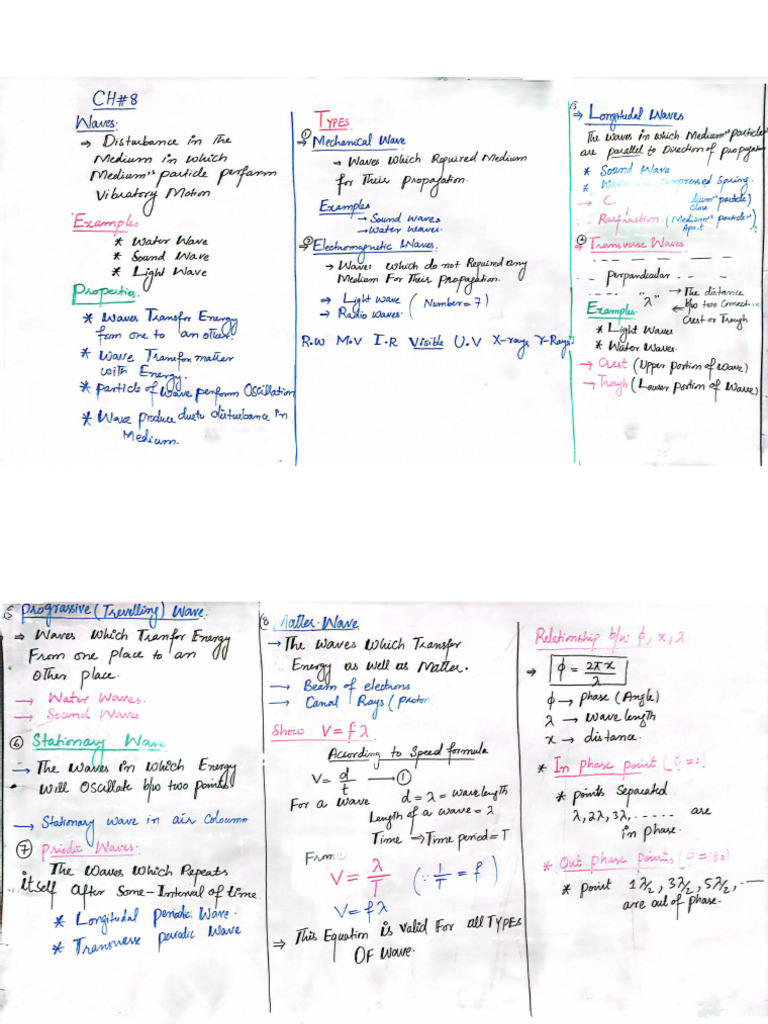 CH#8
Waves:
⇒ Disturbance in The
Medium in which
Medium" particle perform
Vibratory Motion
Examples
* Water Wave
* Sound Wave
* Light Wave
Properties.
* Waves Transfer Energy
from one to an other.
* Wave Transfor matter
with Energy.
* particle of wave perform Oscillation
* Wave produce due to disturbance in
Medium.
TYPES
① Mechanical Wave
⇒ Waves Which Required Medium
for Their Propagation.
Examples
→ Sound waves
→ Water waves.
② Electromagnetic Waves.
→ Waves which do not Required any
Medium For Their Propagation.
⇒ Light wave (Number = 7)
⇒ Radio waves
R.W M.V I.R Visible U.V X-rays γ-Rays
⇒ Longitudal Waves
The waves in which Medium" particle
are parallel to Direction of propagation
* Sound Wave
* Wave in compressed Spring.
→ C. particle)
close
Rasfraction. (Medium" particle"
Apa.t
④ Transverse Waves
perpandicular
"λ" → The distance
b/w two Connective
Crest or Trough
Examples
* Light Waves
* Water Waves.
→ Crest (Upper Portion of wave)
→ Trough (Lower Portion of Wave)
5 Prograssive (Trevelling) Wave.
⇒ Waves Which Tranfer Energy
From one place to an
other place.
→ Water Waves.
→ Sound Waves
⑥ Stationary Wave
→ The Waves in which Energy
Will Oscillate b/w two points
→ Stationary wave in air Coloumn
⑦ Priodic Waves:
The Waves Which Repeats
itself After Some-Interval of time.
* Longitudal periodic Wave.
* Transverse periodic Wave
8 Matter-Wave
→ The Waves Which Transfer
Energy as well as Matter.
→ Beam of electrons
→ Canal Rays (proton
Show V = fλ
According to Speed formula
V = d/t ——①
For a Wave d = λ = wavelength
Length of a wave = λ
Time ⇒ Time period = T
From ①
V = λ/T (∵ 1/T = f)
V = fλ
⇒ This Equation is Valid For all TYPES
OF Wave.
Relationship b/w ϕ, x, λ
⇒ ϕ = 2πx/λ
ϕ → phase (Angle)
λ → Wave length
x → distance.
* In phase point (ϕ = 0)
* points Separated
λ, 2λ, 3λ, ..... are
in phase.
* Out phase points (ϕ = 180)
* point 1λ/2, 3λ/2, 5λ/2, ---
are out of phase.